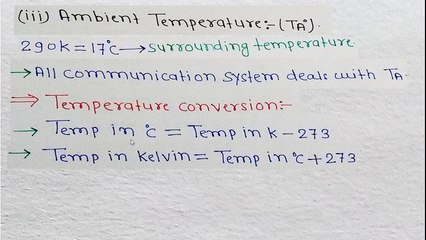 (iii) Ambient Temperature:-(TA°).
290k=17°c→surrounding temperature.
→All communication system deals with TA.
⇒Temperature conversion:-
→ Temp in °c = Temp in k-273
→ Temp in kelvin= Temp in °c+273